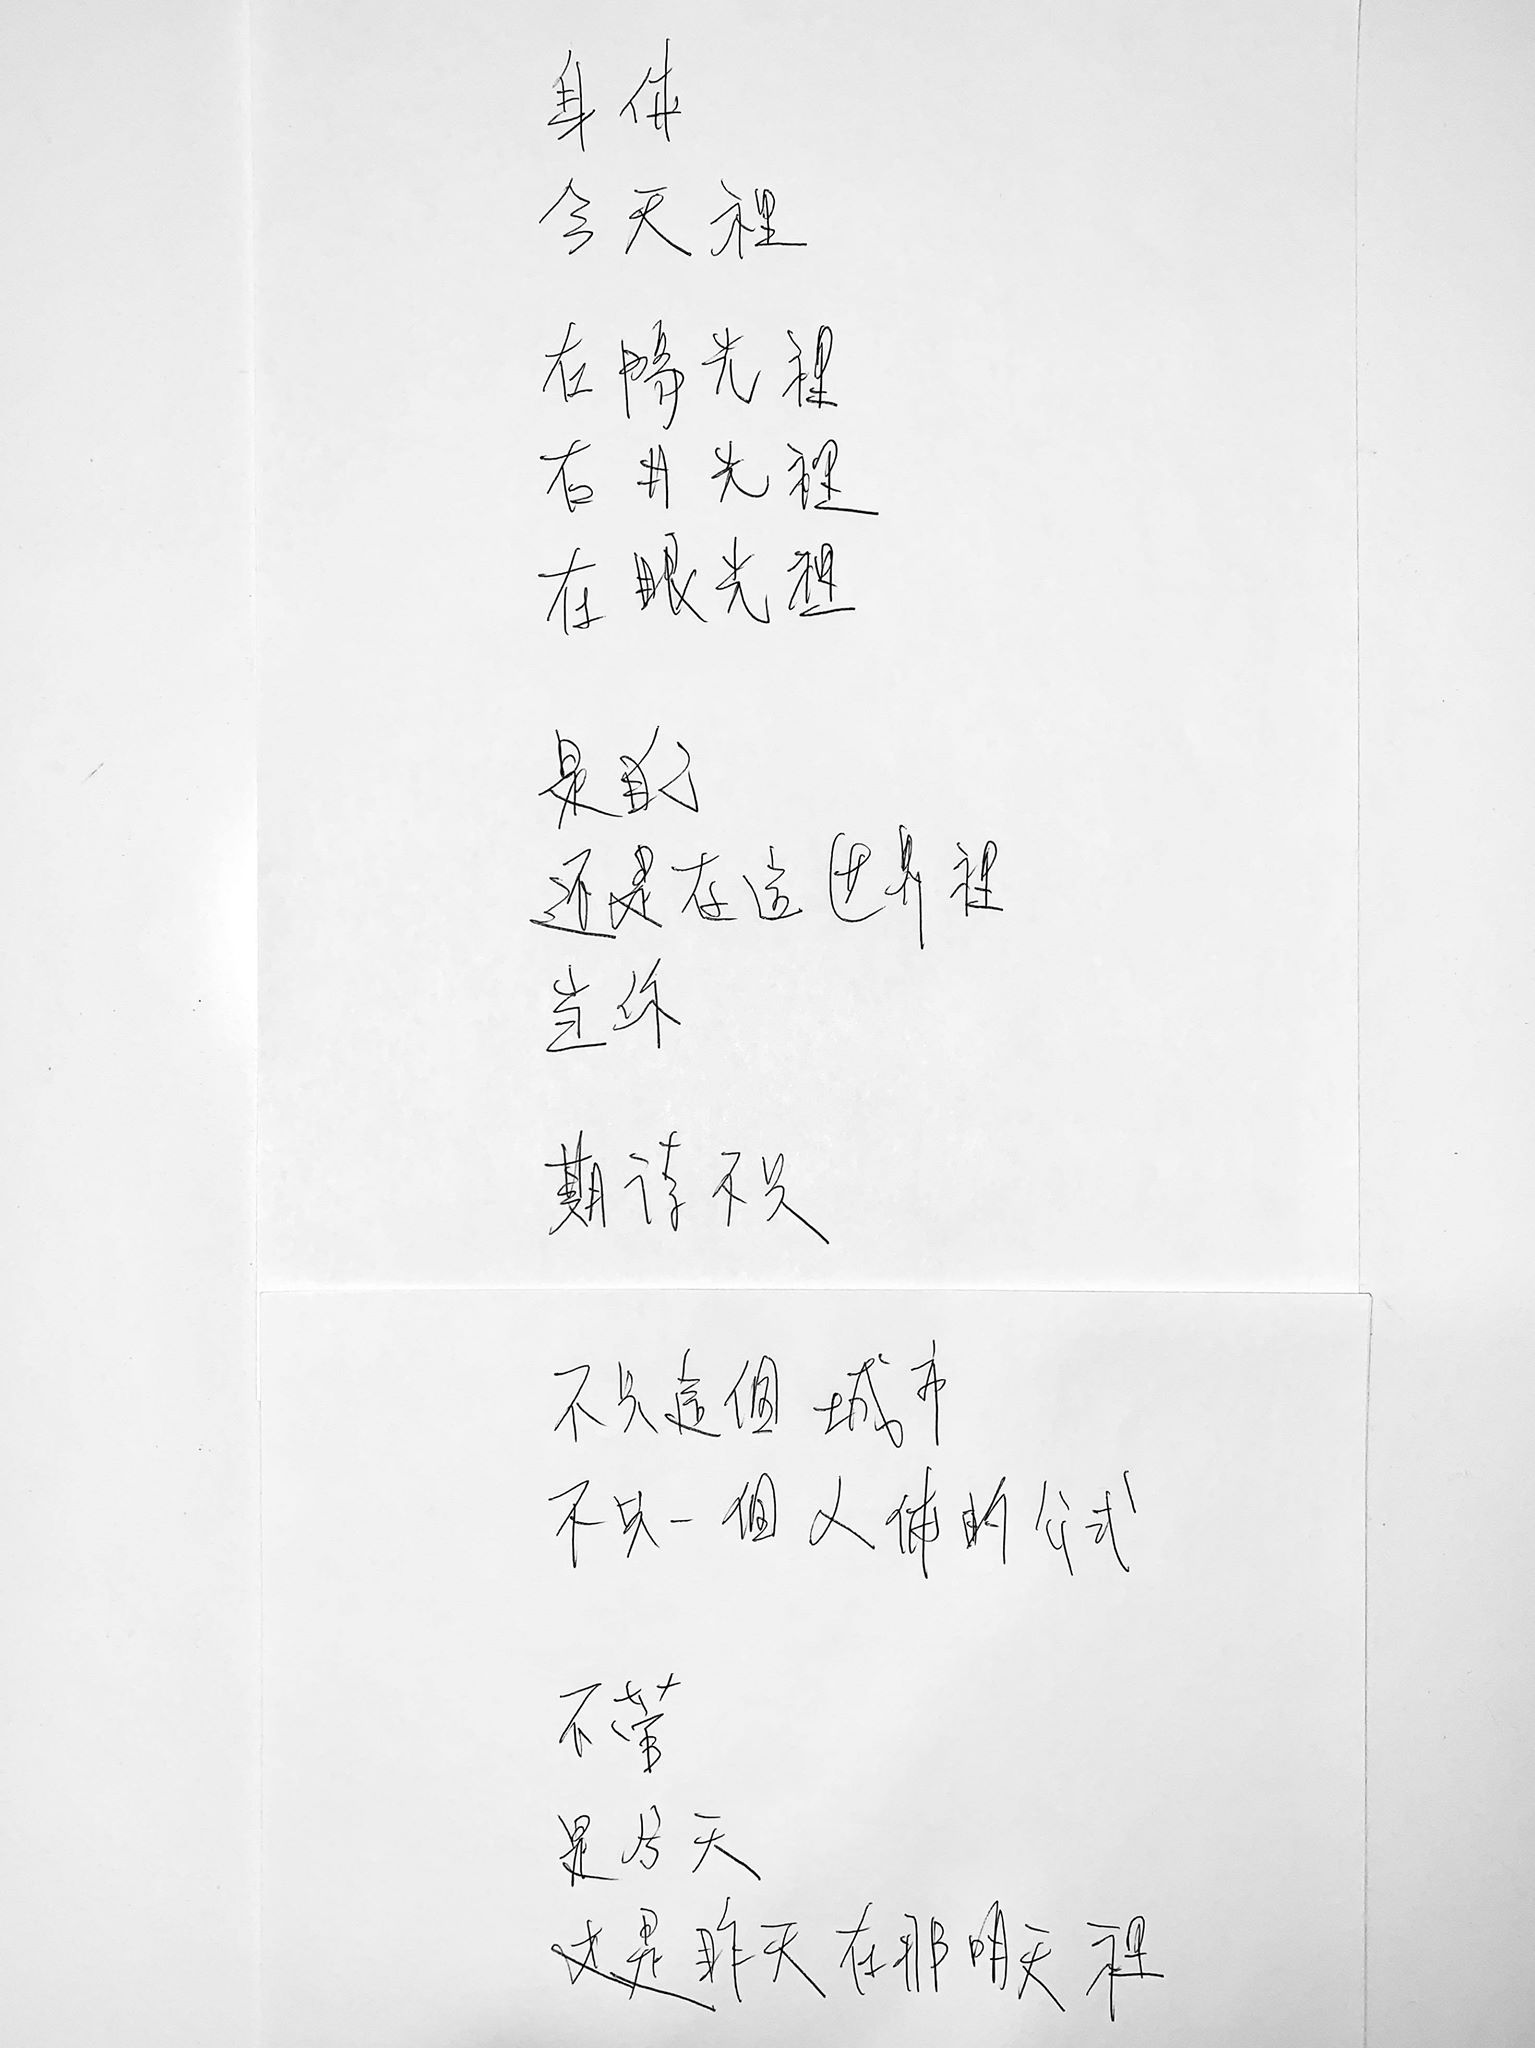 身体
今天裡
在陽光裡
在月光裡
在眼光裡
是的
还是在這世界裡
當你
期待不只
不只這個城市
不只一個人佈的公式
不带
是今天
还是昨天在那明天裡